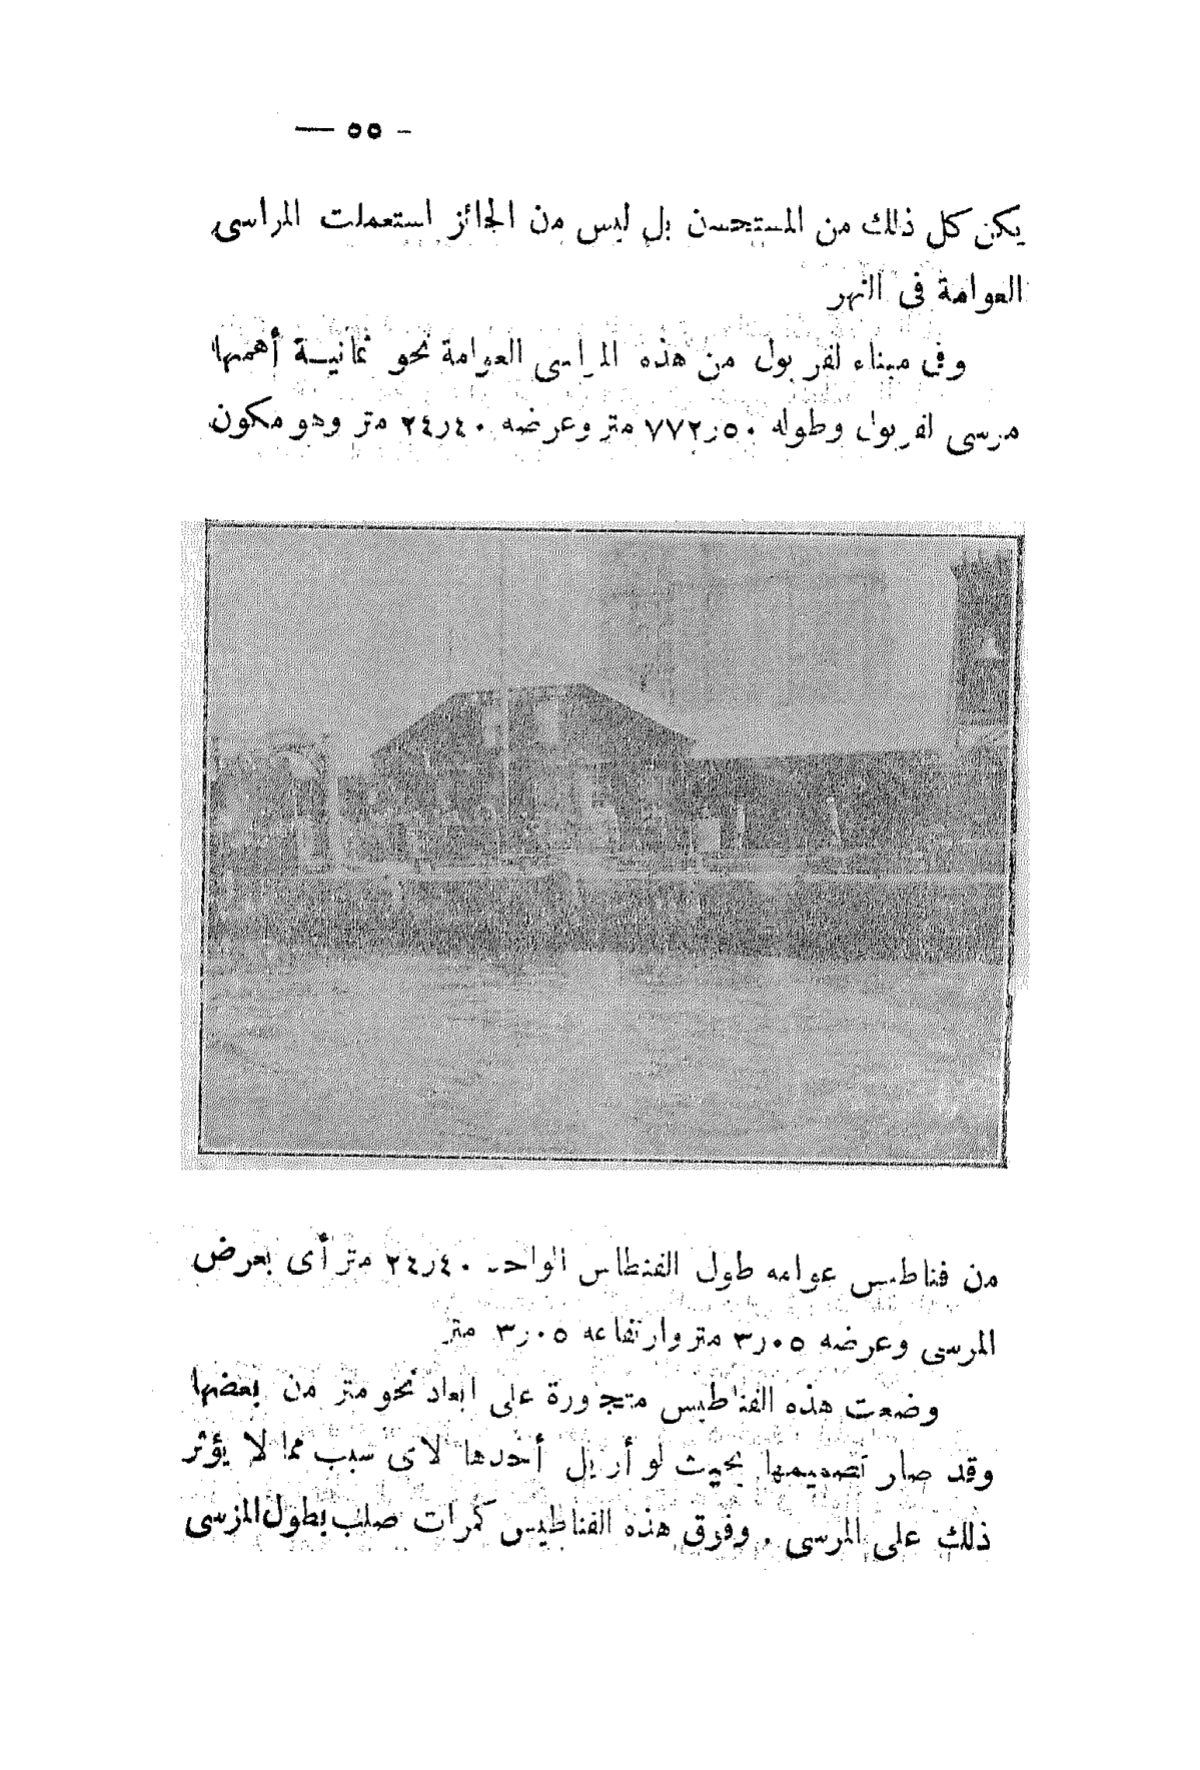 — ٥٥ -
يكن كل ذلك من المستحسن بل ليس من الجائز استعملت المراسى
العوامة فى النهر
وفى ميناء لفربول من هذه المراسى العوامة نحو ثمانية أهمها
مرسى لفربول وطوله ٧٧٢٫٥٠ متر وعرضه ٢٤٫٤٠ متر وهو مكون
من فناطيس عوامه طول الفنطاس الواحد ٢٤٫٤٠ متر أى بعرض
المرسى وعرضه ٣٫٠٥ متر وارتفاعه ٣٫٠٥ متر
وضعت هذه الفناطيس متجاورة على ابعاد نحو متر من بعضها
وقد صار تصميمها بحيث لو أزيل أحدها لاى سبب مما لا يؤثر
ذلك على المرسى . وفوق هذه الفناطيس كمرات صلب بطول المرسى